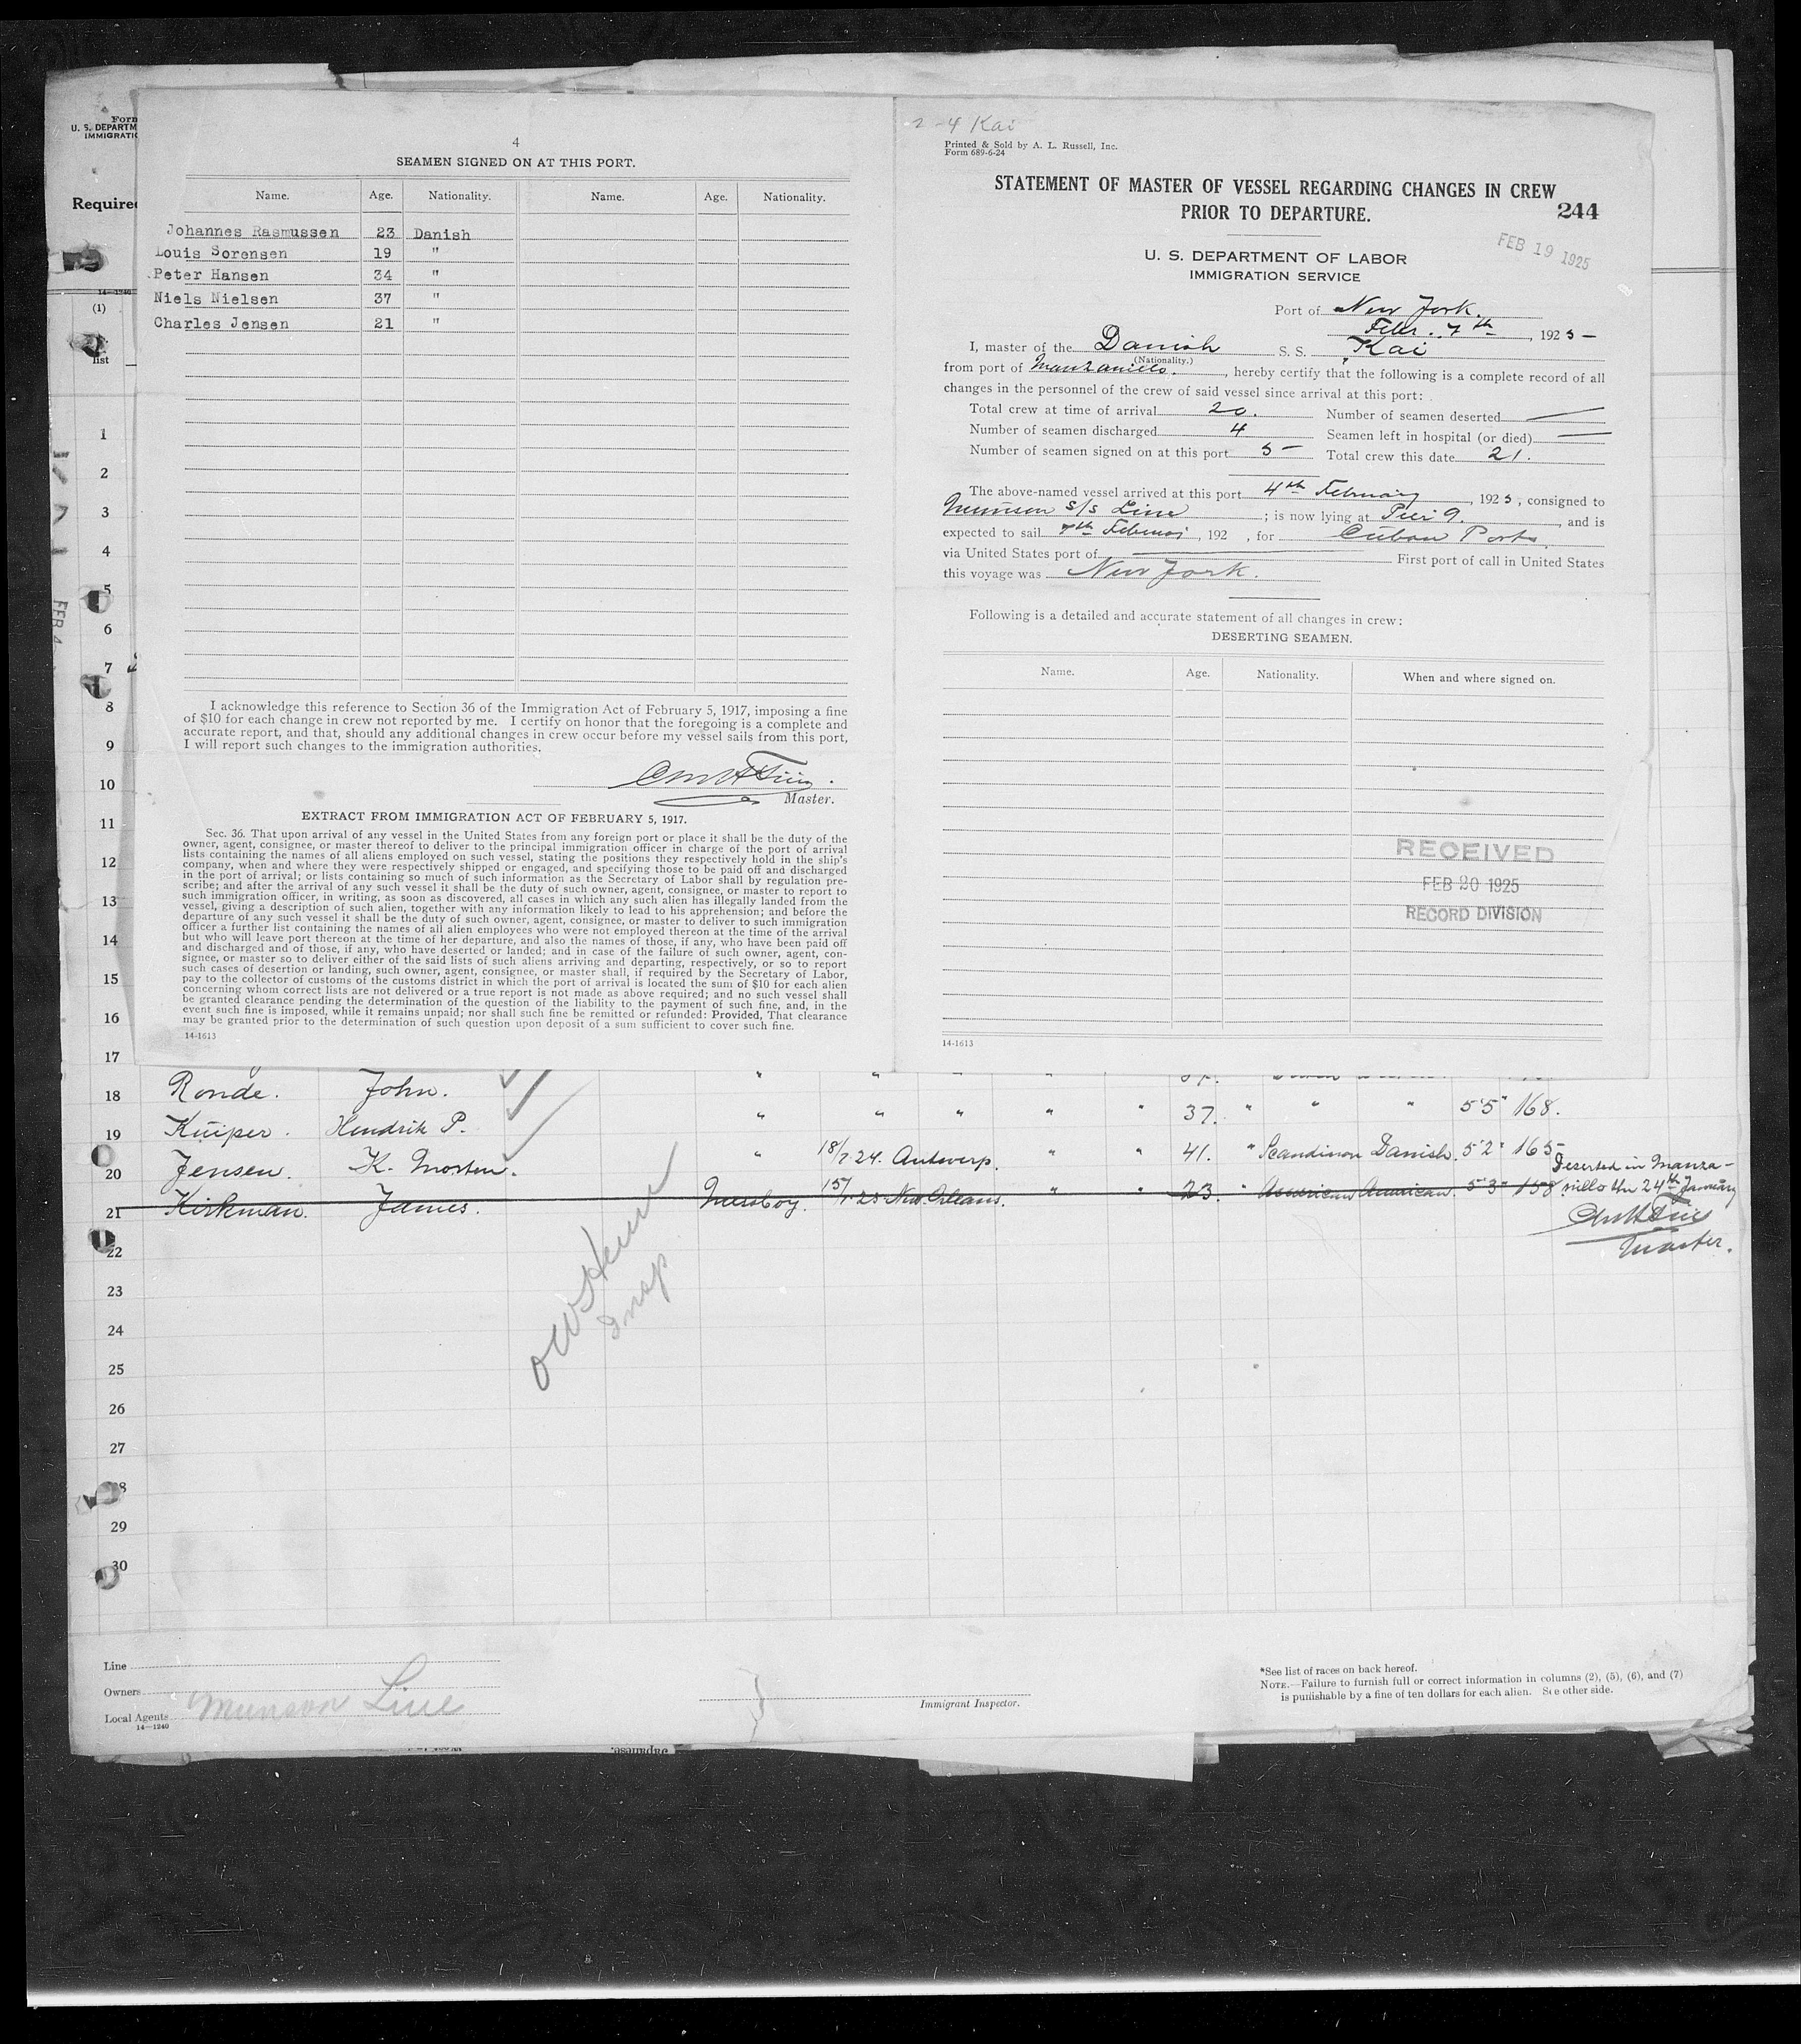 Form
U. S. DEPARTM
IMMIGRATI
Required
14-1240
(1)
list
1
2
3
4
5
6
7
8
9
10
11
12
13
14
15
16
17
FEB 4
4
SEAMEN SIGNED ON AT THIS PORT.
Name. Age. Nationality. Name. Age. Nationality.
Johannes Rasmussen 23 Danish
Louis Sorensen 19 "
Peter Hansen 34 "
Niels Nielsen 37 "
Charles Jensen 21 "
I acknowledge this reference to Section 36 of the Immigration Act of February 5, 1917, imposing a fine
of $10 for each change in crew not reported by me. I certify on honor that the foregoing is a complete and
accurate report, and that, should any additional changes in crew occur before my vessel sails from this port,
I will report such changes to the immigration authorities.
Master.
EXTRACT FROM IMMIGRATION ACT OF FEBRUARY 5, 1917.
Sec. 36. That upon arrival of any vessel in the United States from any foreign port or place it shall be the duty of the
owner, agent, consignee, or master thereof to deliver to the principal immigration officer in charge of the port of arrival
lists containing the names of all aliens employed on such vessel, stating the positions they respectively hold in the ship's
company, when and where they were respectively shipped or engaged, and specifying those to be paid off and discharged
in the port of arrival; or lists containing so much of such information as the Secretary of Labor shall by regulation pre-
scribe; and after the arrival of any such vessel it shall be the duty of such owner, agent, consignee, or master to report to
such immigration officer, in writing, as soon as discovered, all cases in which any such alien has illegally landed from the
vessel, giving a description of such alien, together with any information likely to lead to his apprehension; and before the
departure of any such vessel it shall be the duty of such owner, agent, consignee, or master to deliver to such immigration
officer a further list containing the names of all alien employees who were not employed thereon at the time of the arrival
but who will leave port thereon at the time of her departure, and also the names of those, if any, who have been paid off
and discharged and of those, if any, who have deserted or landed; and in case of the failure of such owner, agent, con-
signee, or master so to deliver either of the said lists of such aliens arriving and departing, respectively, or so to report
such cases of desertion or landing, such owner, agent, consignee, or master shall, if required by the Secretary of Labor,
pay to the collector of customs of the customs district in which the port of arrival is located the sum of $10 for each alien
concerning whom correct lists are not delivered or a true report is not made as above required; and no such vessel shall
be granted clearance pending the determination of the question of the liability to the payment of such fine, and, in the
event such fine is imposed, while it remains unpaid; nor shall such fine be remitted or refunded: Provided, That clearance
may be granted prior to the determination of such question upon deposit of a sum sufficient to cover such fine.
14-1613
2-4 Kai
Printed & Sold by A. L. Russell, Inc.
Form 689-6-24
STATEMENT OF MASTER OF VESSEL REGARDING CHANGES IN CREW
PRIOR TO DEPARTURE.
244
FEB 19 1925
U. S. DEPARTMENT OF LABOR
IMMIGRATION SERVICE
Port of New York.
Febr. 7th, 1925
I, master of the Danish S. S. "Kai
(Nationality.)
from port of Manzanillo., hereby certify that the following is a complete record of all
changes in the personnel of the crew of said vessel since arrival at this port:
Total crew at time of arrival 20. Number of seamen deserted —
Number of seamen discharged 4 Seamen left in hospital (or died) —
Number of seamen signed on at this port 5 Total crew this date 21.
The above-named vessel arrived at this port 4th February, 1925, consigned to
Munson S/S Line; is now lying at Pier 9., and is
expected to sail 7th Februar, 192 , for Cuban Ports,
via United States port of — First port of call in United States
this voyage was New York.
Following is a detailed and accurate statement of all changes in crew:
DESERTING SEAMEN.
Name. Age. Nationality. When and where signed on.
RECEIVED
FEB 20 1925
RECORD DIVISION
14-1613
18 Ronde. John. " " " " " 37. " " " 5'5" 168.
19 Kuiper. Hendrik P.
20 Jensen. K. Morten. " 18/7 24. Antwerp. " " 41. " Scandinav Danish. 5'2" 165
21 Kirkman. James. Messboy. 15/1-25 New Orleans. " " 23. " American American. 5'3" 158
Deserted in Manza-
nillo the 24th January
Master.
22
23
24
25
26
27
28
29
30
Insp
Line
Owners
Local Agents Munson Line
14—1240
Immigrant Inspector.
*See list of races on back hereof.
NOTE.—Failure to furnish full or correct information in columns (2), (5), (6), and (7)
is punishable by a fine of ten dollars for each alien. See other side.